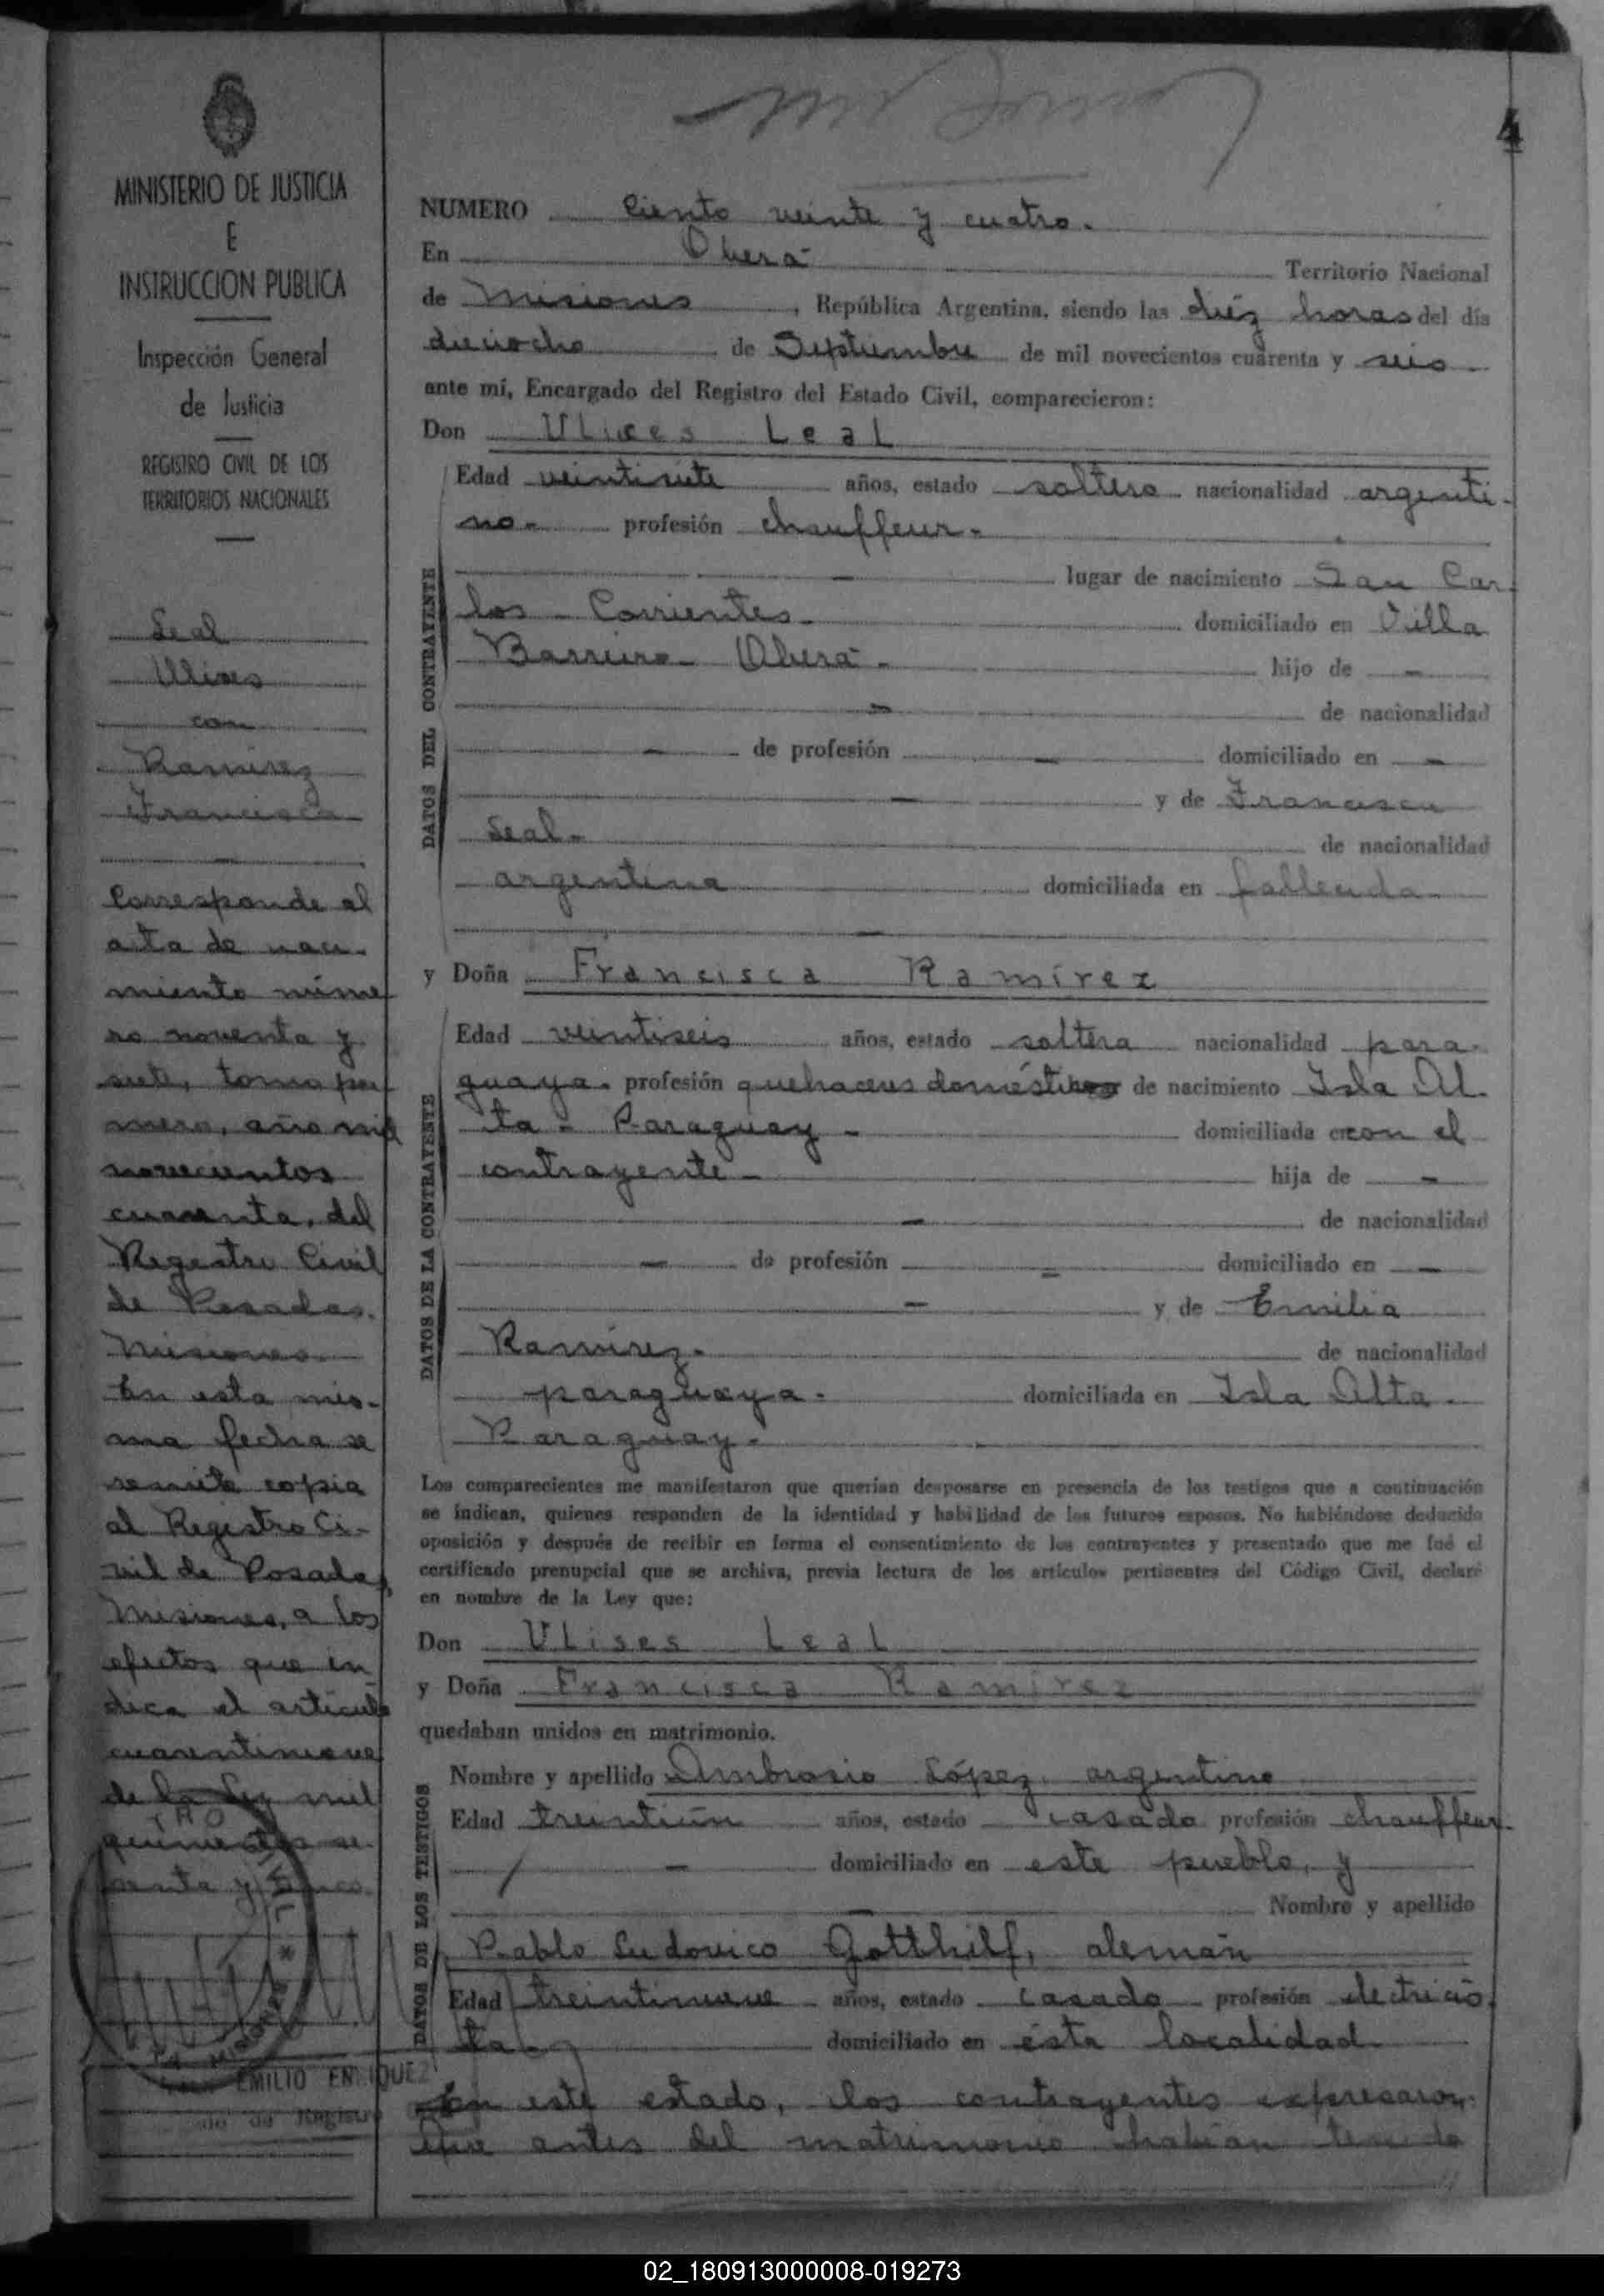 4
MINISTERIO DE JUSTICIA
E
INSTRUCCION PUBLICA
Inspección General
de Justicia
REGISTRO CIVIL DE LOS
TERRITORIOS NACIONALES
Leal
Ulises
con
Ramirez
Francisca
Corresponde al
acta de naci-
miento núme
ro noventa y
siete, tomo pri
mero, año mil
novecientos
cuarenta, del
Registro Civil
de Posadas.
Misiones.
En esta mis-
ma fecha se
remite copia
al Registro Ci-
vil de Posadas,
Misiones, a los
efectos que in
dica el articulo
cuarentinueve
de la Ley mil
quinientos se
senta y cinco.
EMILIO ENRIQUEZ
NUMERO Ciento veinte y cuatro.
En Oberá Territorio Nacional
de Misiones, República Argentina, siendo las diéz horas del día
dieciocho de Septiembre de mil novecientos cuarenta y seis
ante mí, Encargado del Registro del Estado Civil, comparecieron:
Don Ulises Leal
DATOS DEL CONTRAYENTE
Edad veintisiete años, estado soltero nacionalidad argenti-
no.- profesión chauffeur.-
lugar de nacimiento San Car
los - Corrientes.- domiciliado en Villa
Barreiro - Oberá.- hijo de -
- de nacionalidad
- de profesión - domiciliado en -
- y de Francisca
Leal.- de nacionalidad
argentina domiciliada en fallecida
-
y Doña Francisca Ramírez
DATOS DE LA CONTRAYENTE
Edad veintiseis años, estado soltera nacionalidad para-
guaya. profesión quehaceres domésticos de nacimiento Isla Al-
ta - Paraguay - domiciliada con el
contrayente - hija de -
- de nacionalidad
- de profesión - domiciliado en -
- y de Emilia
Ramírez.- de nacionalidad
paraguaya.- domiciliada en Isla Alta.-
Paraguay.-
Los comparecientes me manifestaron que querían desposarse en presencia de los testigos que a continuación
se indican, quienes responden de la identidad y habilidad de los futuros esposos. No habiéndose deducido
oposición y después de recibir en forma el consentimiento de los contrayentes y presentado que me fué el
certificado prenupcial que se archiva, previa lectura de los artículos pertinentes del Código Civil, declaré
en nombre de la Ley que:
Don Ulises Leal
y Doña Francisca Ramirez
quedaban unidos en matrimonio.
DATOS DE LOS TESTIGOS
Nombre y apellido Ambrosio López, argentino
Edad treintiún años, estado casado profesión chauffeur.
- domiciliado en este pueblo, y
- Nombre y apellido
Pablo Ludovico Gotthilf, alemán
Edad treintinueve años, estado casado profesión electricis
ta. domiciliado en ésta localidad
En este estado, los contrayentes expresaron:
Que antes del matrimonio habían tenido
02_180913000008-019273